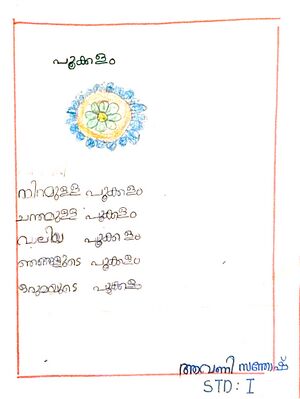 പൂക്കളം
നിറമുള്ള പൂക്കളം
ചന്തമുള്ള പൂക്കളം
വലിയ പൂക്കളം
ഞങ്ങളുടെ പൂക്കളം
പൂക്കളം
അവണി സന്തോഷ്
STD: I